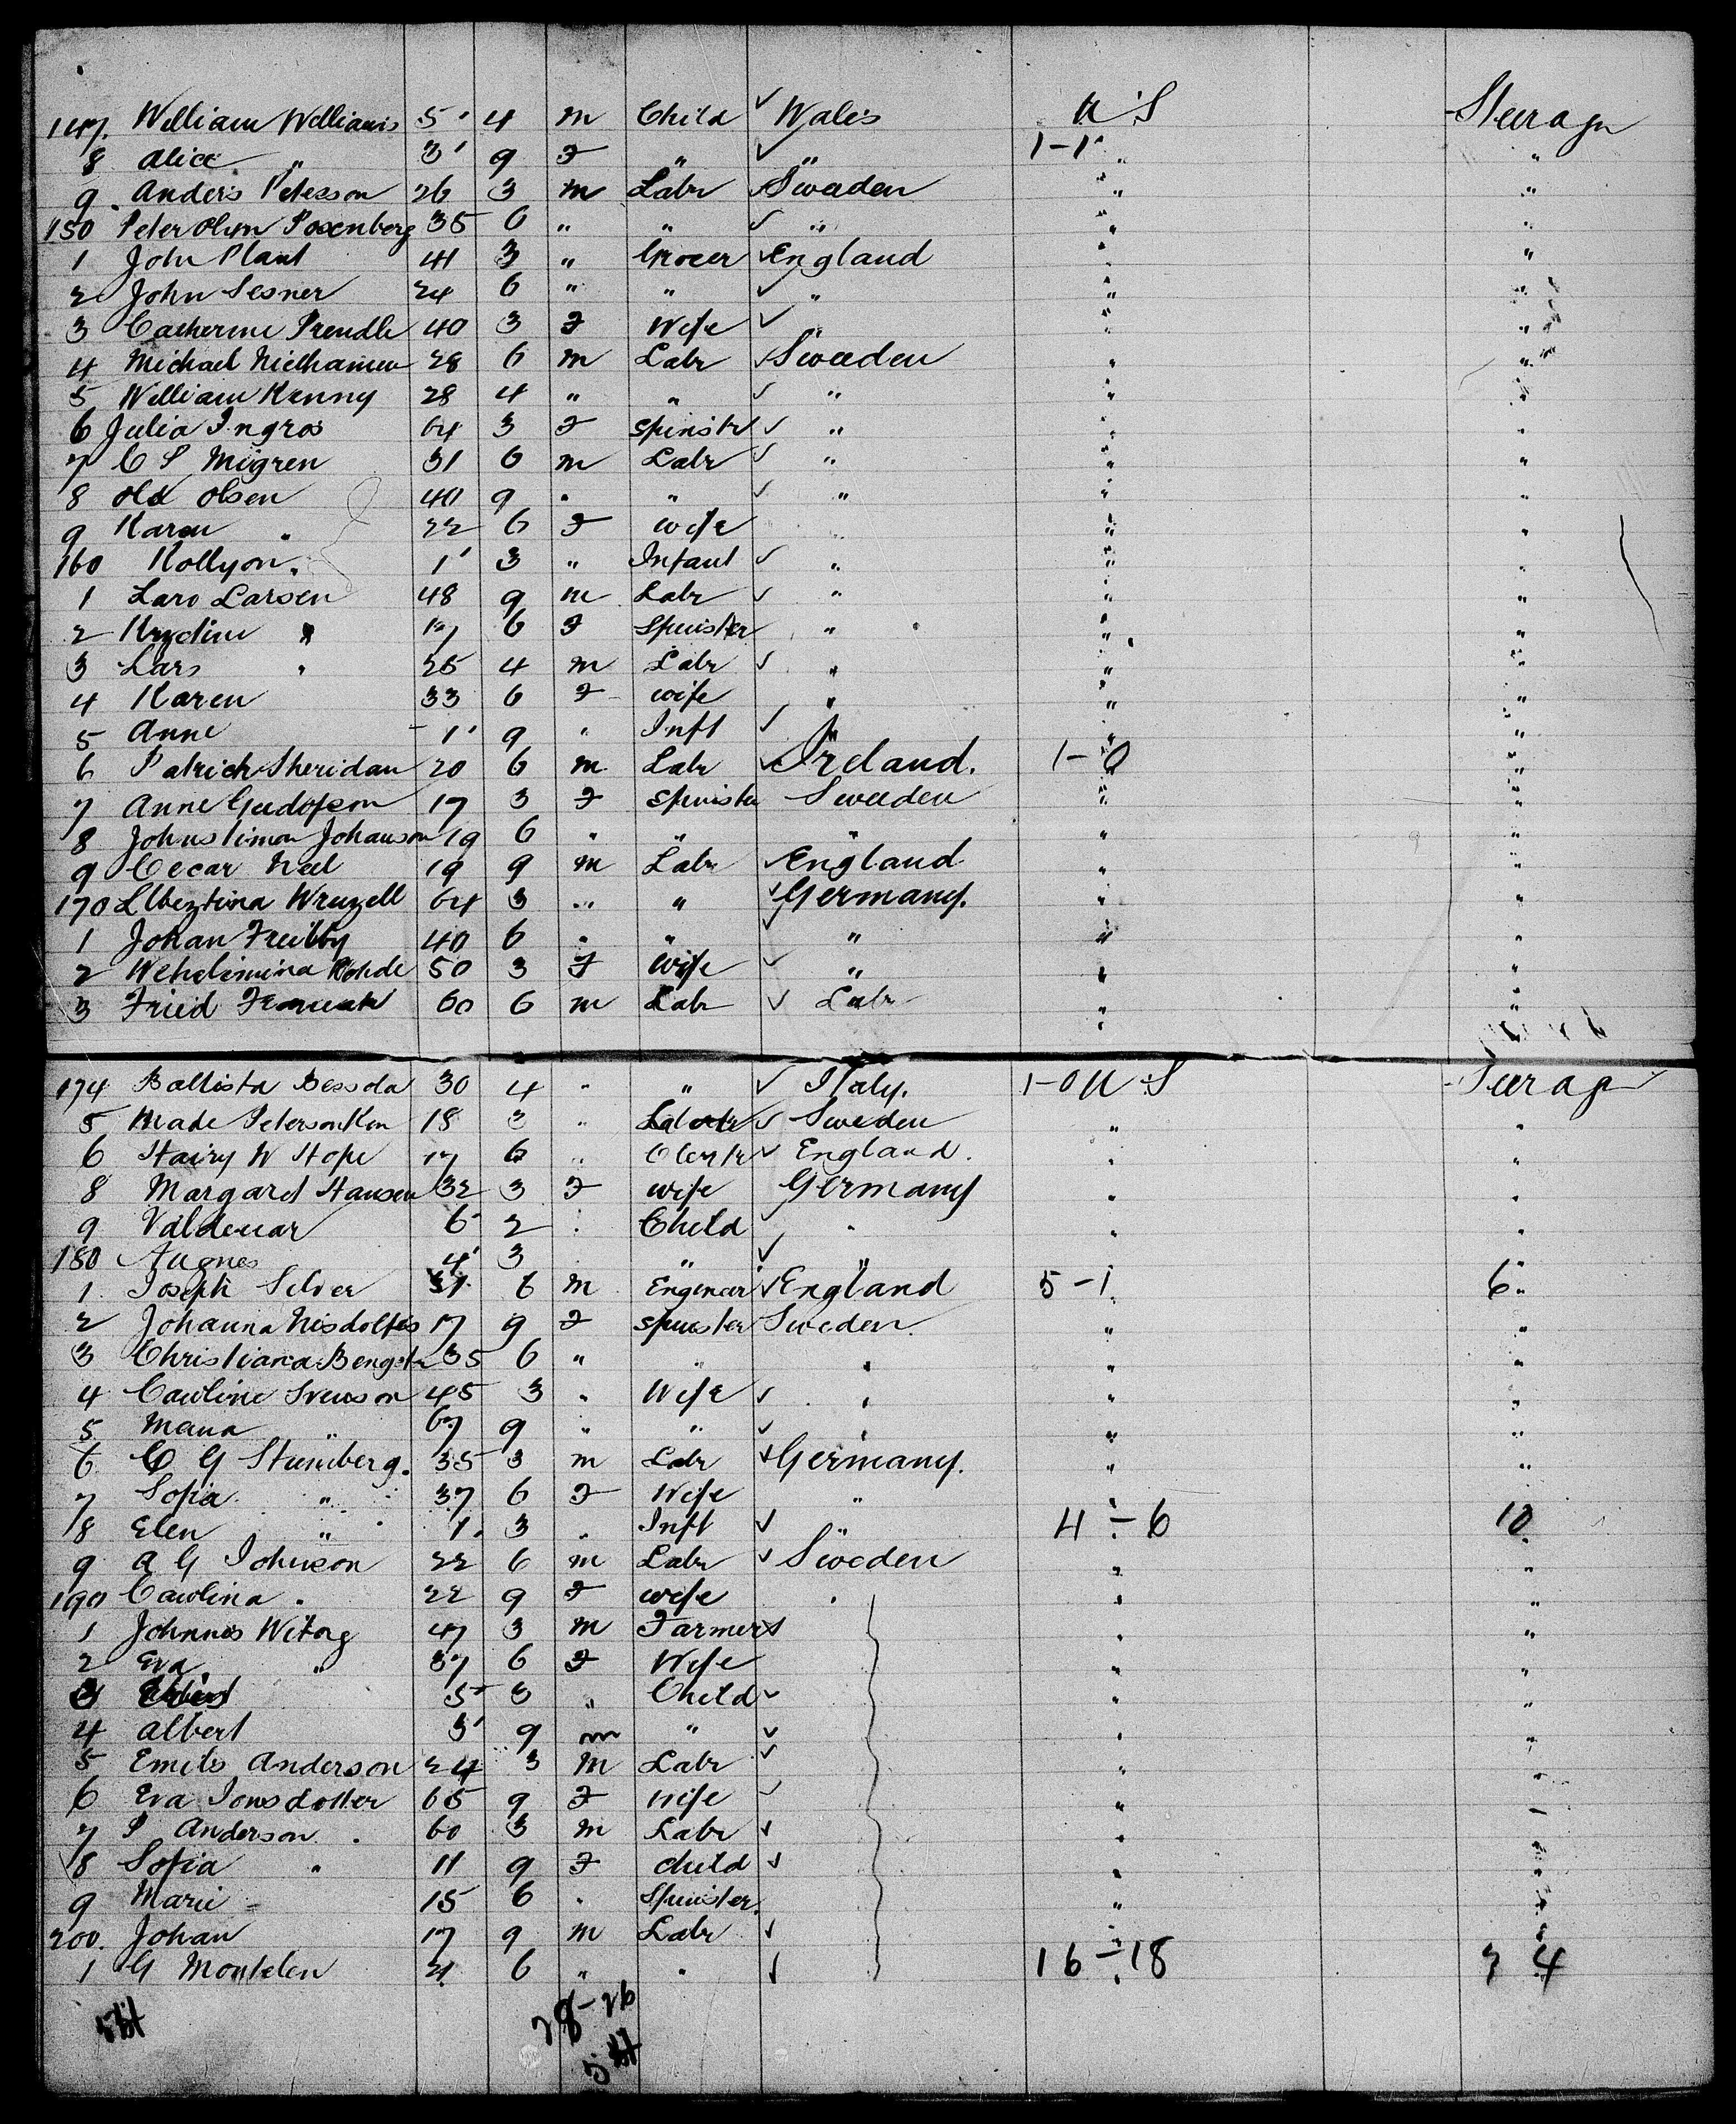 147. William Williams 5' 4 m Child ✓ Wales U S Steerage
8 Alice " 3' 9 F " ✓ " 1-1 " "
9. Anders Petersson 26 3 m Labr ✓ Sweden " "
150 Peter Olsen Posenberg 35 6 " " ✓ " " "
1 John Plant 41 3 " Grocer ✓ England " "
2 John Sesner 24 6 " " ✓ " " "
3 Catherine Prendle 40 3 F Wife ✓ " " "
4 Michael 28 6 m Labr ✓ Sweeden " "
5 William Kenny 28 4 " " ✓ " " "
6 Julia Ingros 64 3 F Spinstr ✓ " " "
7 C S Migren 31 6 m Labr ✓ " " "
8 Old Olsen 40 9 " " ✓ " " "
9 Karen " 22 6 F wife " "
160 Kollyon " 1' 3 " Infant ✓ " " "
1 Lars Larsen 48 9 m Labr ✓ " " "
2 " 17 6 F Spinster " " "
3 Lars " 25 4 m Labr ✓ " " "
4 Karen 33 6 F wife " " "
5 Anne 1' 9 " Inft ✓ " " "
6 Patrick Sheridan 20 6 m Labr ✓ Ireland. 1-0 "
7 Anne Gudofson 17 3 F Spinster Sweeden " "
8 Johnstimon Johanson 19 6 " " " " "
9 Cecar Neel 19 9 m Labr ✓ England " "
170 64 3 " " ✓ Germany. " "
1 Johan 40 6 " " ✓ " " "
2 Wehelimina Rohde 50 3 F Wife ✓ " " "
3 Fried 60 6 m Labr ✓ Labr " "
174 Battista Bessola 30 4 " " ✓ Italy. 1-0 U S Steerage
5 Made 18 3 " ✓ Sweden " "
6 Hairy W Hope 17 6 " Clerk ✓ England. " "
8 Margard Hansen 32 3 F wife Germany " "
9 Valdemar 6 2 " Child ✓ " " "
180 Augnes 4' 3 " ✓ " "
1. Joseph Silver 31 6 m Engenear ✓ England 5-1 6"
2 Johanna Nisdolfes 17 9 F Spinster Sweden. " "
3 Christiana Bengstr 35 6 " " " " "
4 Cauline Svenson 45 3 " Wife ✓ " " "
5 Mana " 67 9 " " ✓ " " "
6 C G Stumberg. 35 3 m Labr ✓ Germany. " "
7 Sofia " 37 6 F Wife " " "
8 Elen " 1. 3 " Inft ✓ " 4-6 10
9 A G Johnson 22 6 m Labr ✓ Sweden " "
190 Caulina " 22 9 F wife " " "
1 Johnnes Witorg 47 3 m Farmer ✓ " "
2 Eva " 37 6 F Wife " "
3 5 3 " Child ✓ " "
4 Albert 3' 9 m " ✓ " "
5 Emils Anderson 24 3 m Labr ✓ " "
6 Eva Jonsdotter 65 9 F wife ✓ " "
7 P Anderson. 60 3 m Labr ✓ " "
8 Sofia " 11 9 F child ✓ " "
9 Marie 15 6 " Spinster. " "
200. Johan 17 9 m Labr ✓ " "
1 G Montelen 21 6 " " ✓ 16-18 34
28-26